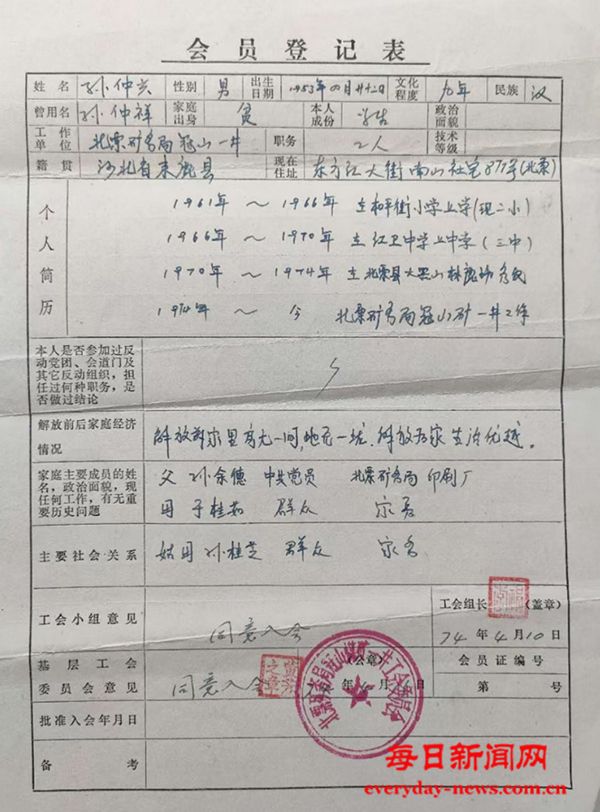 会员登记表
姓名 孙仲兴 性别 男 出生日期 1953年 文化程度 九年 民族 汉
曾用名 孙仲祥 家庭出身 贫 本人成份 学生 政治面貌
工作单位 北票矿务局冠山一井 职务 工人 技术等级
籍贯 河北省束鹿县 现在住址 东方红大街南山社宅877号(北票)
个人简历
1961年 ~ 1966年 在和平街小学上学(现二小)
1966年 ~ 1970年 在红卫中学上中学(三中)
1970年 ~ 1974年 在北票县大黑山林
1974年 ~ 今 北票矿务局冠山矿一井工作
本人是否参加过反动党团、会道门及其它反动组织,担任过何种职务,是否做过结论
解放前后家庭经济情况 解放前家里房无一间,地无一垅.解放后家生活优越。
家庭主要成员的姓名,政治面貌,现任何工作,有无重要历史问题
父 孙余德 中共党员 北票矿务局印刷厂
母 于桂茹 群众 家务
主要社会关系 姑母 孙桂芝 群众 家务
工会小组意见 同意入会 工会组长 (盖章)
74年4月10日
基层工会委员会意见 同意入会 (公章) 年 月 日 会员证编号
第 号
批准入会年月日
备考
每日新闻网
everyday-news.com.cn